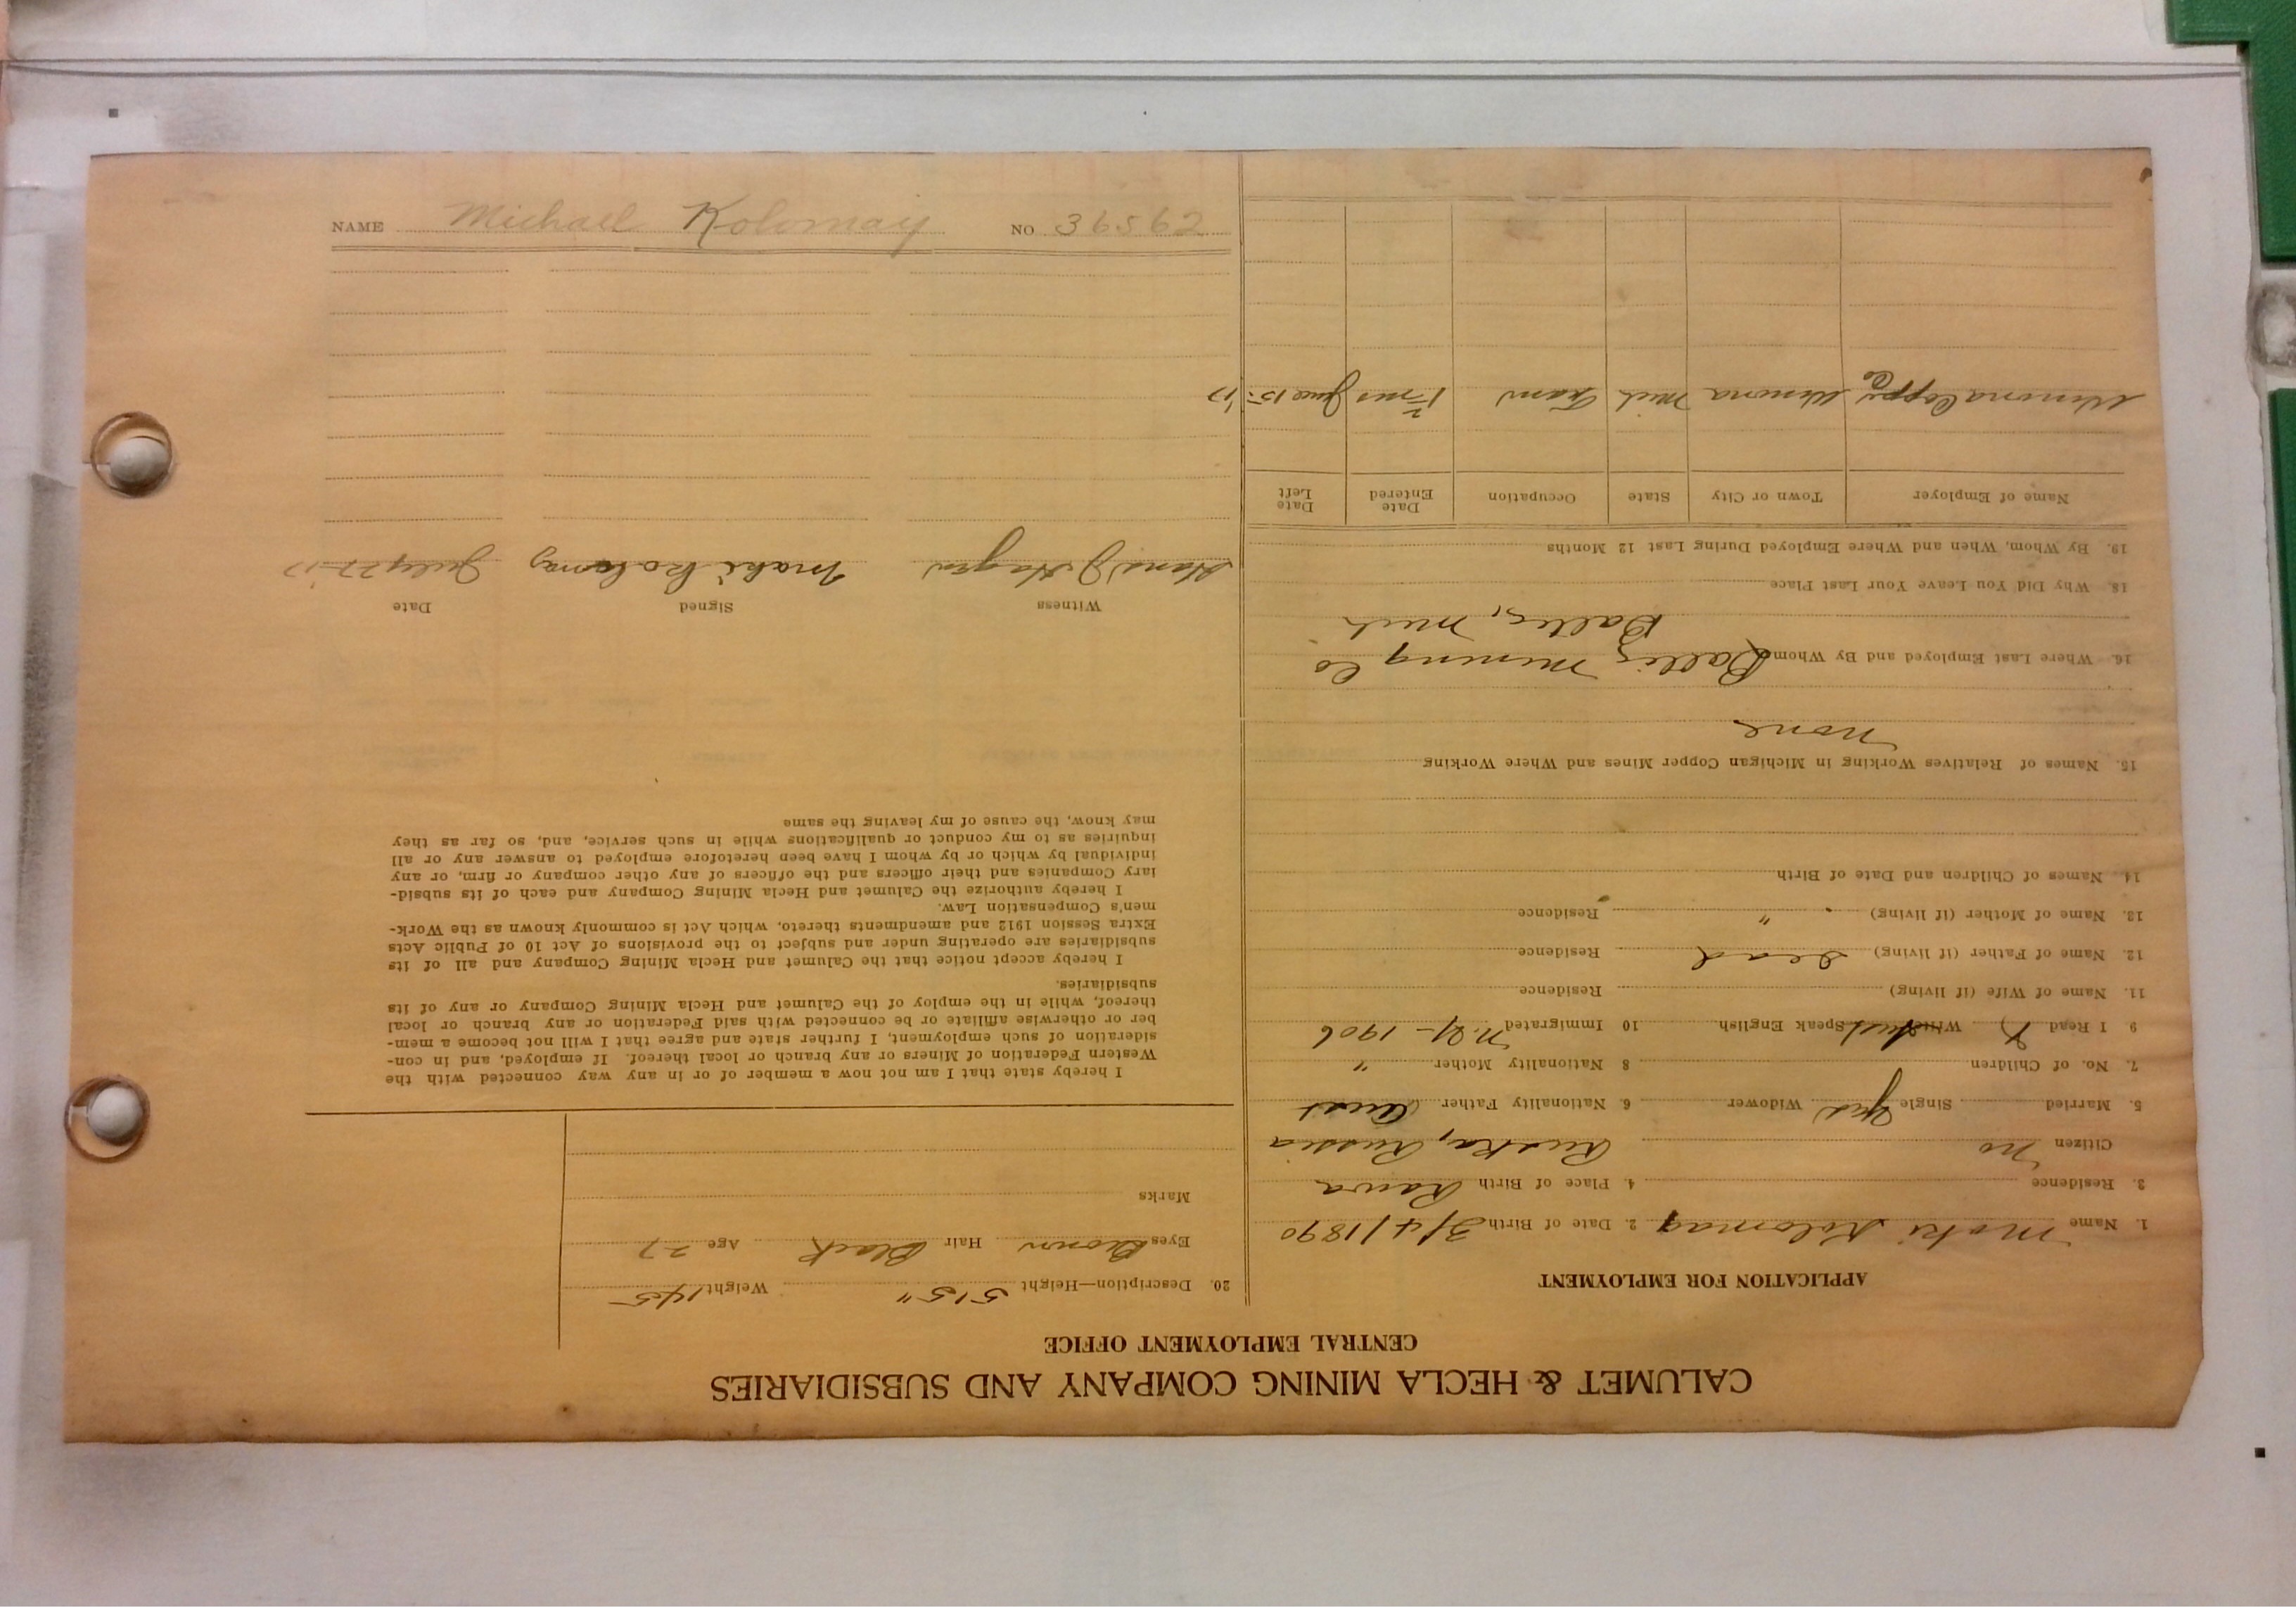 CALUMET & HECLA MINING COMPANY AND SUBSIDIARIES
CENTRAL EMPLOYMENT OFFICE
APPLICATION FOR EMPLOYMENT
1. Name Maki Kolomay 2. Date of Birth 3/4/1890
3. Residence 4. Place of Birth Rawa
Citizen No Russia
5. Married Single Yes Widower 6. Nationality Father
7. No. of Children 8 Nationality Mother "
9 I Read Write Speak English 10 Immigrated N.Y - 1906
11. Name of Wife (if living) Residence
12. Name of Father (if living) Dead Residence
13. Name of Mother (if living) " Residence
14. Names of Children and Date of Birth
15. Names of Relatives Working in Michigan Copper Mines and Where Working
None
16. Where Last Employed and By Whom Baltic Mining Co
Baltic, Mich
18. Why Did You Leave Your Last Place
19. By Whom, When and Where Employed During Last 12 Months
Name of Employer Town or City State Occupation Date Entered Date Left
Winona Copper Co Winona Mich Tram mos June 15- '17
20. Description—Height 5'5" Weight 145
Eyes Brown Hair Black Age 27
Marks
I hereby state that I am not now a member of or in any way connected with the
Western Federation of Miners or any branch or local thereof. If employed, and in con-
sideration of such employment, I further state and agree that I will not become a mem-
ber or otherwise affiliate or be connected with said Federation or any branch or local
thereof, while in the employ of the Calumet and Hecla Mining Company or any of its
subsidiaries.
I hereby accept notice that the Calumet and Hecla Mining Company and all of its
subsidiaries are operating under and subject to the provisions of Act 10 of Public Acts
Extra Session 1912 and amendments thereto, which Act is commonly known as the Work-
men's Compensation Law.
I hereby authorize the Calumet and Hecla Mining Company and each of its subsid-
iary Companies and their officers and the officers of any other company or firm, or any
individual by which or by whom I have been heretofore employed to answer any or all
inquiries as to my conduct or qualifications while in such service, and, so far as they
may know, the cause of my leaving the same
Witness Signed Date
Hans J. Hagen Maki Kolomay July 27-17
NAME Michael Kolomay NO 36562